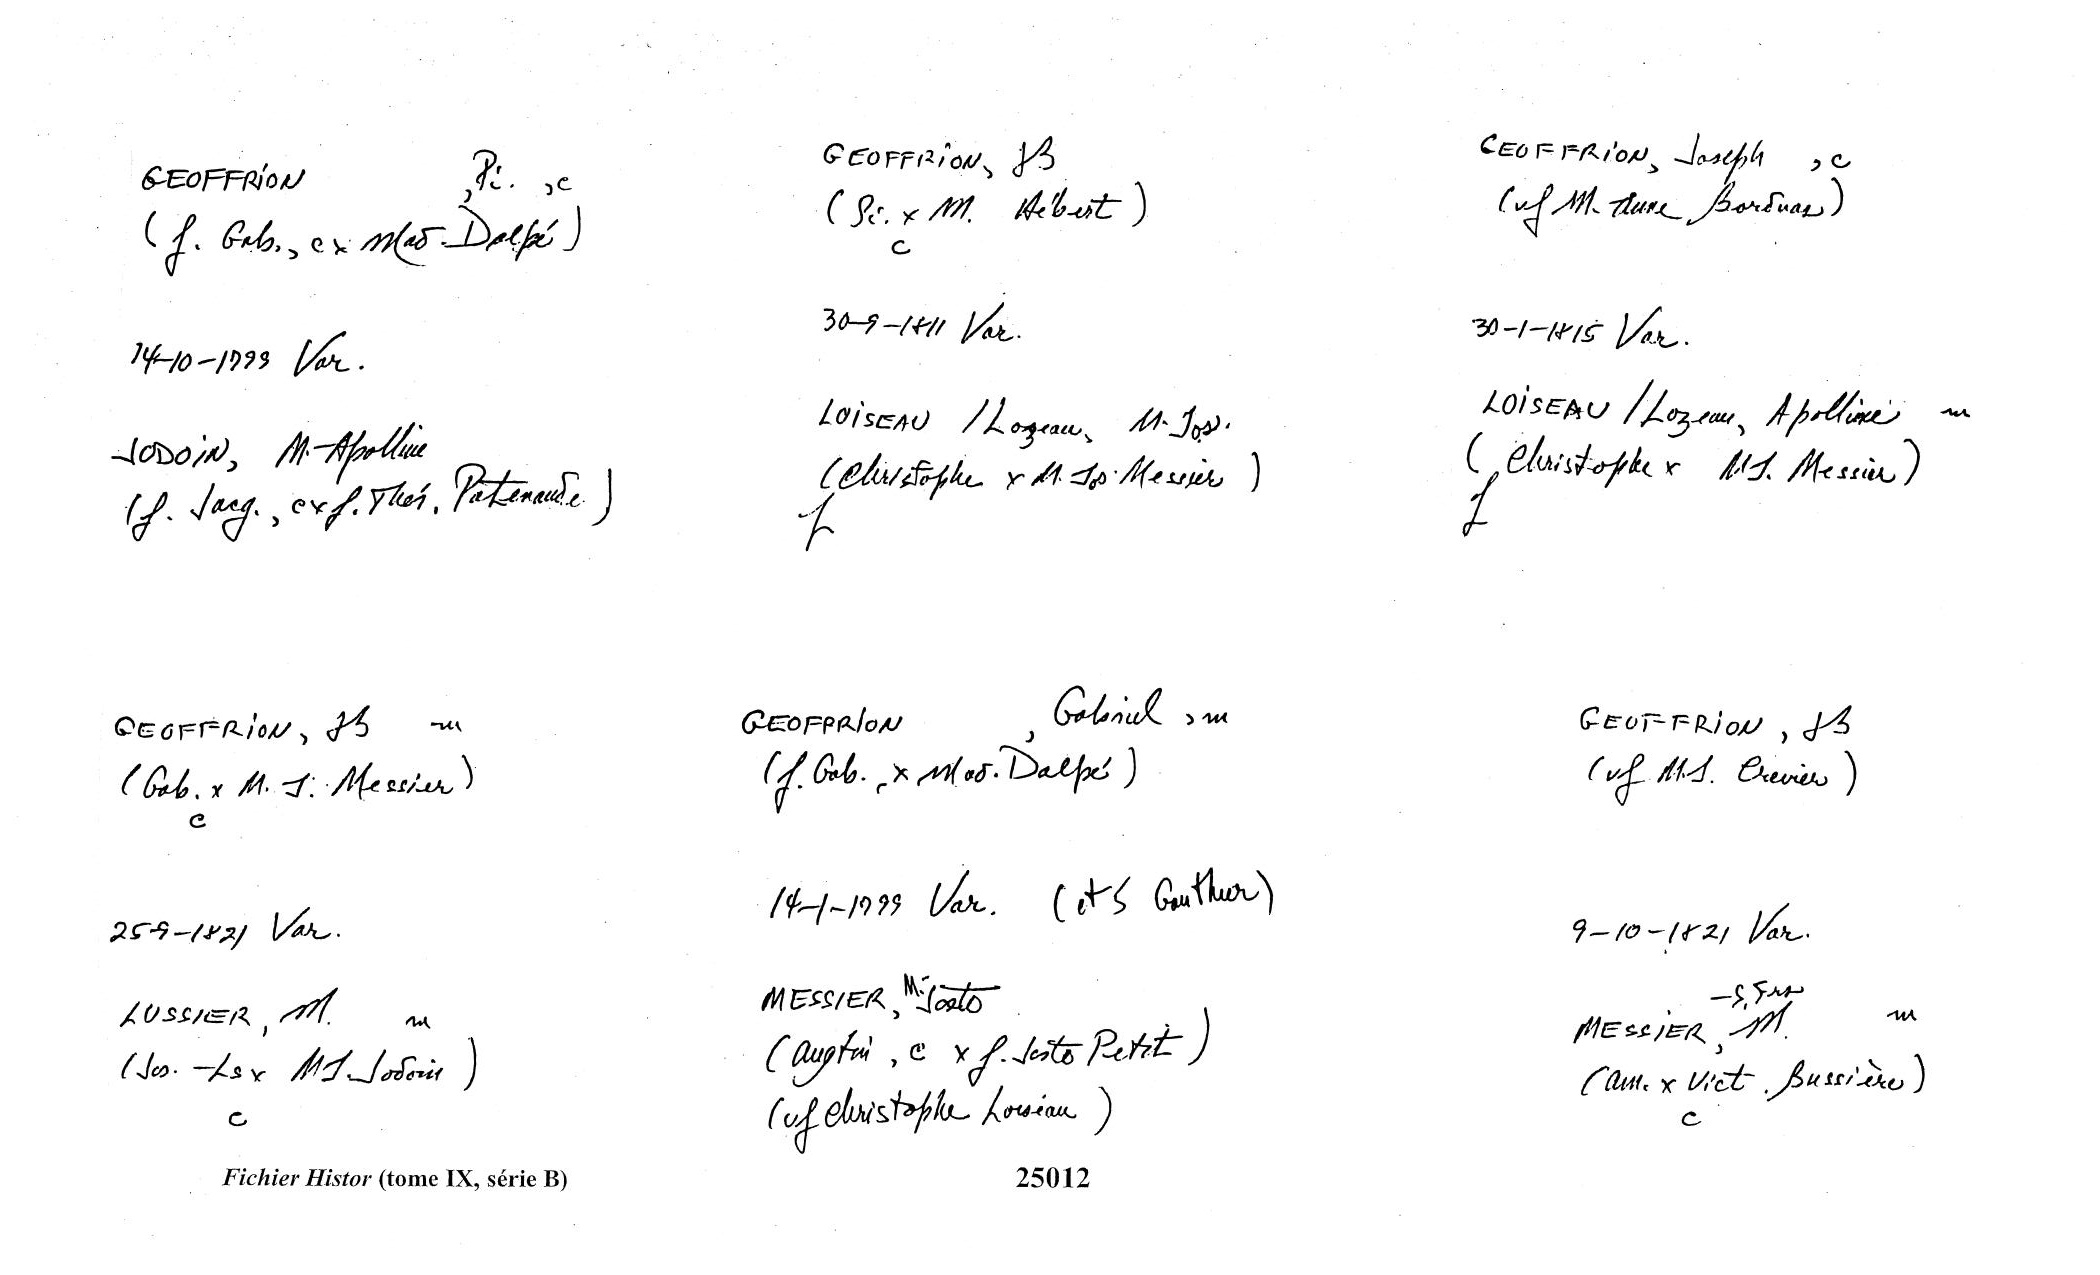 GEOFFRION , Pi. , c
(f. Gab., c x Mad. Dalpé)
14-10-1799 Var.
JODOIN, M-Apolline
(f. Jacq., c x f. Thér. Patenaude)
GEOFFRION, JB
(Pi. x M. Hébert)
c
30-9-1811 Var.
LOISEAU /Lozeau, M-Jos.
(Christophe x M. Jos. Messier)
f
GEOFFRION, Joseph , c
(vf M-Anne Borduas)
30-1-1815 Var.
LOISEAU /Lozeau, Apolline m
(Christophe x MJ. Messier)
f
GEOFFRION, JB m
(Gab. x M. J. Messier)
c
25-9-1821 Var.
LUSSIER, M. m
(Jos. -Ls x MJ. Jodoin)
c
GEOFFRION , Gabriel , m
(f. Gab., x Mad. Dalpé)
14-1-1799 Var. (et S Gauthier)
MESSIER, M-Josto
(Augtin, c x f. Josto Petit)
(vf Christophe Loiseau)
GEOFFRION, JB
(vf M.J. Crevier)
9-10-1821 Var.
MESSIER, M. m
(Am. x Vict. Bussière)
c
Fichier Histor (tome IX, série B)
25012